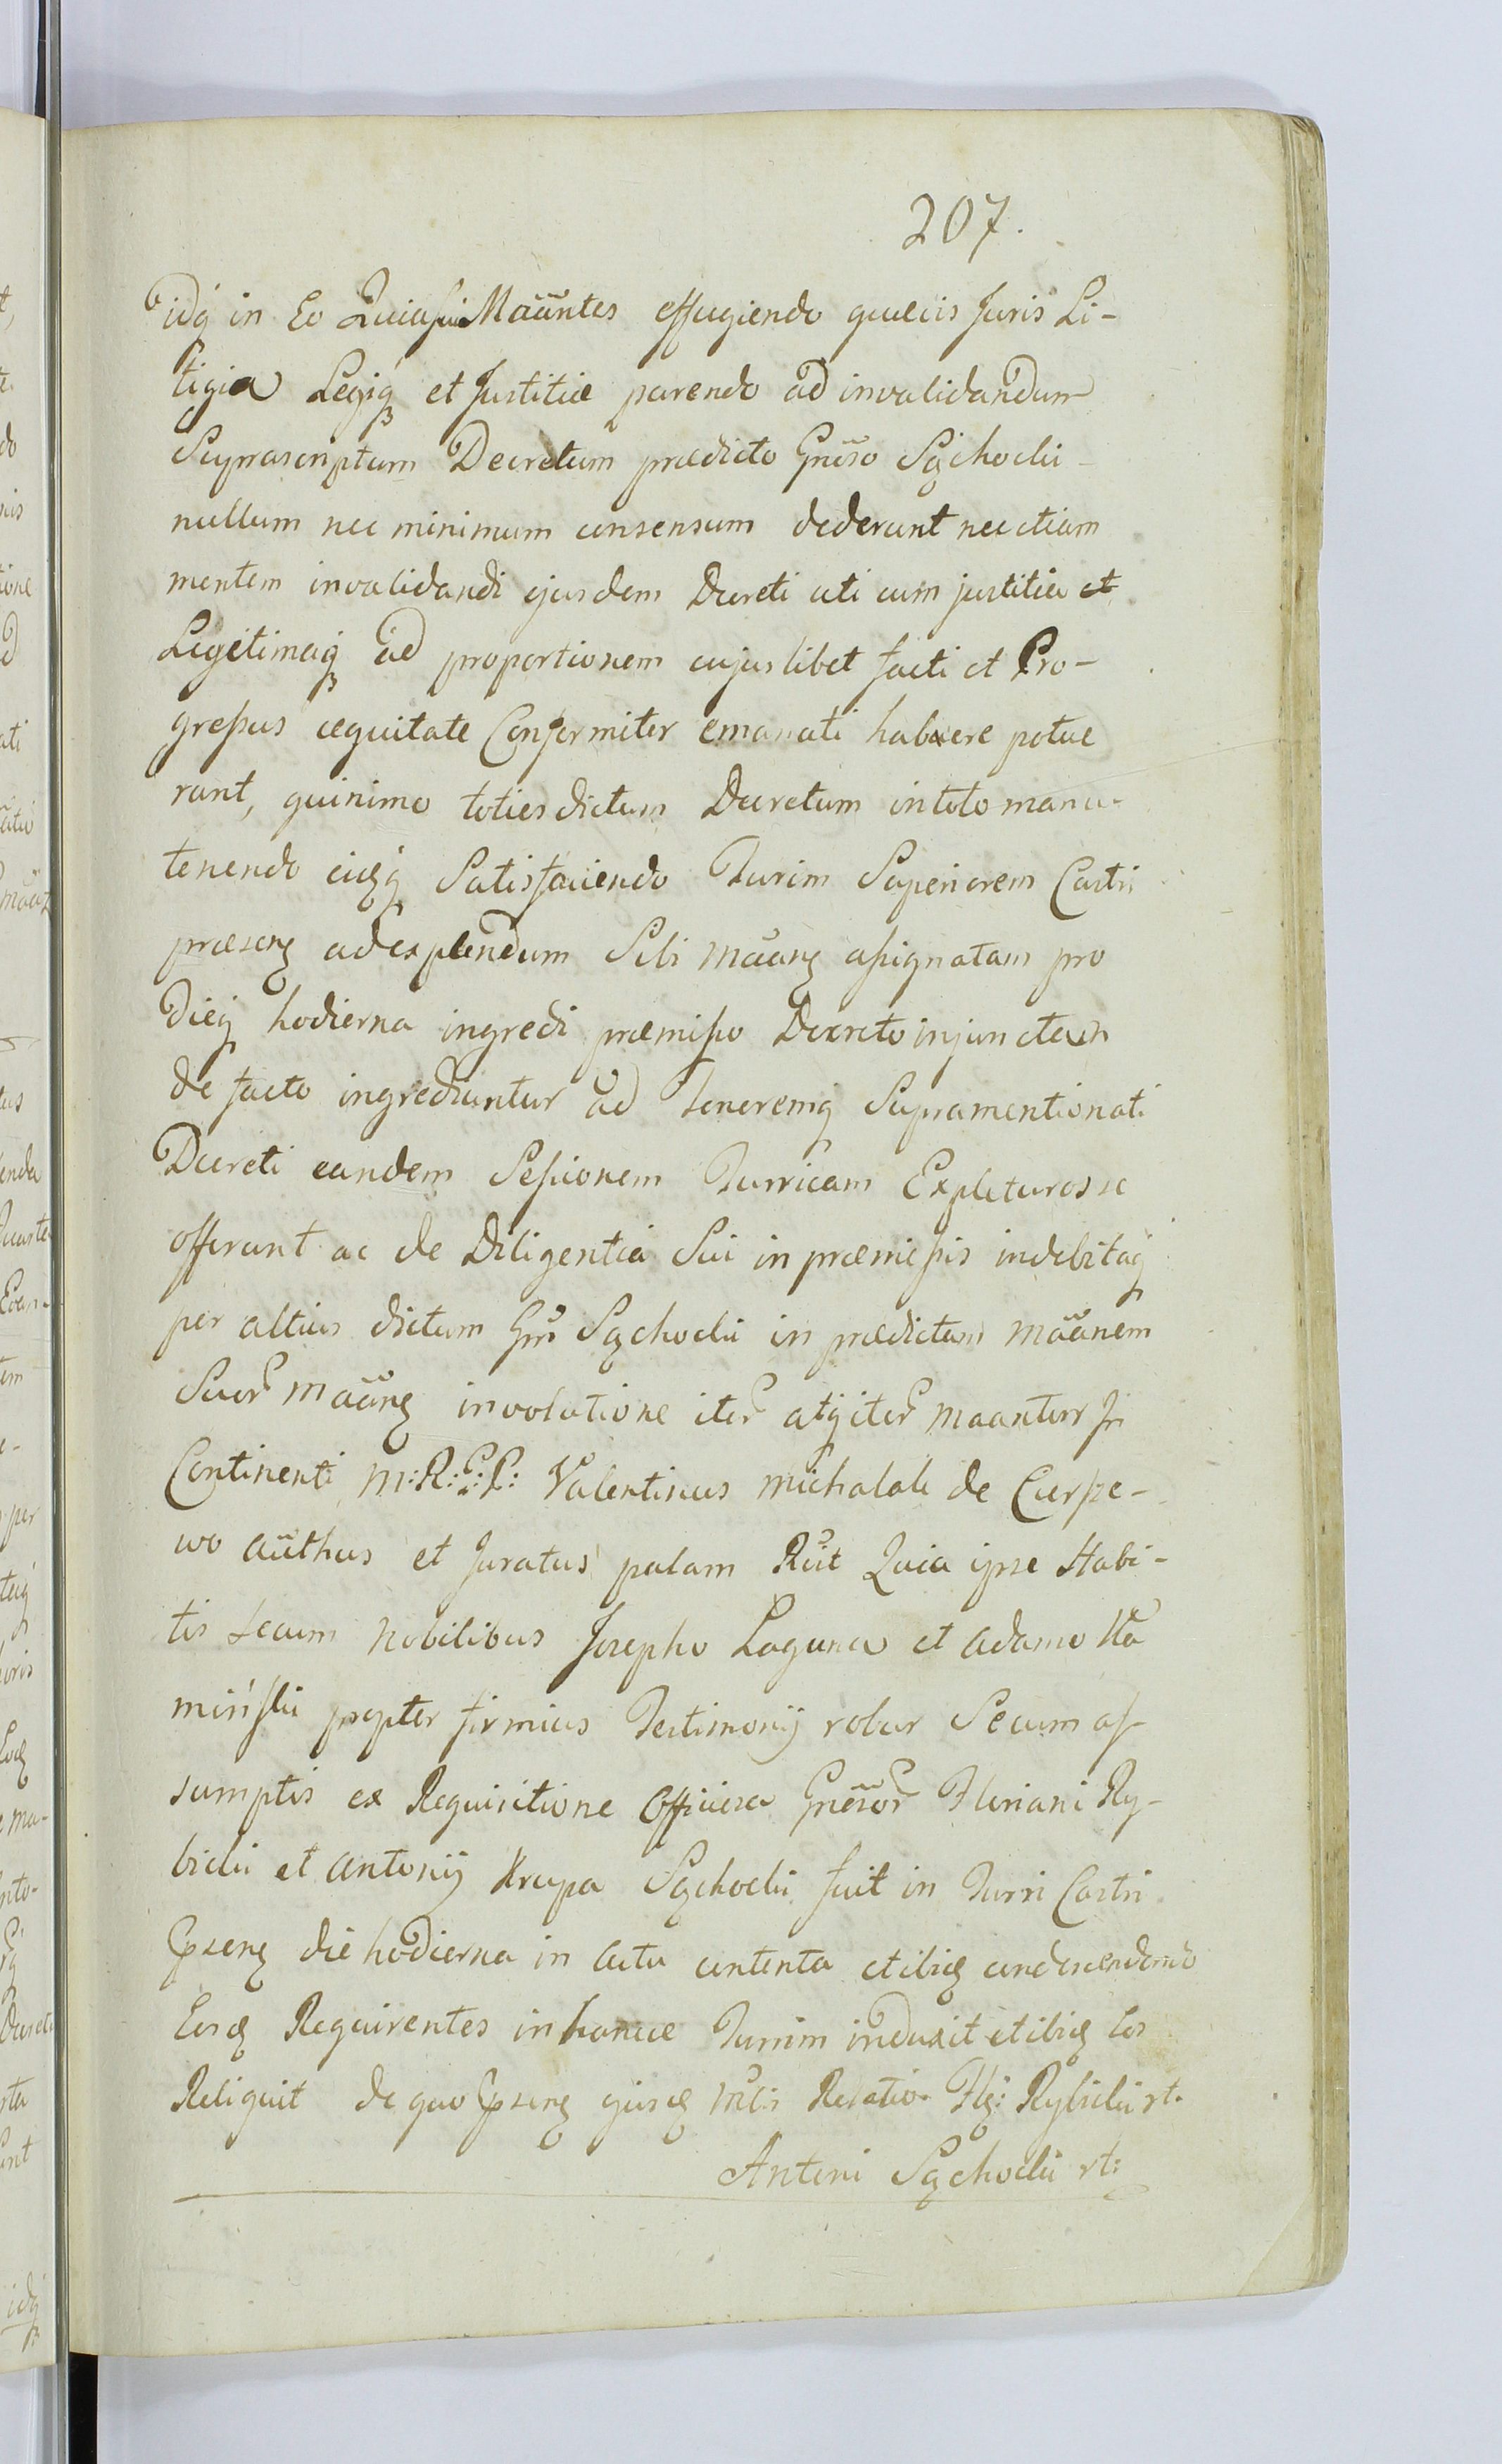 207.
idq in Eo Quia sui Maantes effugiendo quaevis Juris Li-
tigia Legiq et Justitiae parendo ad invalidandum
Suprascriptum Decretum praedicto Gnoso Sąchocki
nullum nec minimum consensum dederunt nec etiam
mentem invalidandi ejusdem Decreti uti cum justitia et
Legitimaq ad proportionem cujuslibet facti et Pro-
gressus aequitate Conformiter emanati habere potue
rant, quinimo toties dictum Decretum in toto manu-
tenendo eidq Satisfaciendo Turim Superiorem Castri
praesenq ad explendum Sibi maanq assignatam pro
Dieq hodierna ingredi praemisso Decreto injunctam
de facto ingrediuntur ad tenoremq Supramentionati
Decreti eandem Sessionem Turricam Expleturos se
offerunt ac de Diligentia Sui in praemissis indebitaq
per altius dictum Gnm Sąchocki in praedictam maanem
Suor maanq involutione iter atq iter maantur In
Continenti M: R: P: P: Valentinus Michalak de Cierpe-
wo authus et Juratus palam Rcit Quia ipse Habi-
tis secum Nobilibus Josepho Laguna et Adamo Ka
minski propter firmius Testimonij robur Secum as
sumptis ex Requisitione Officiosa Gnesor Floriani Ry-
bicki et Antonij Krupa Sąchocki fuit in Turri Castri
Psenq die hodierna in Actu contenta et ibiq condescendendo
Eosq Requirentes in hancce Turrim induxit et ibiq Eos
Reliquit de quo Psenq ejusq Mlis Relatio Flq: Rybicki rt.
Antoni Sąchocki rt: